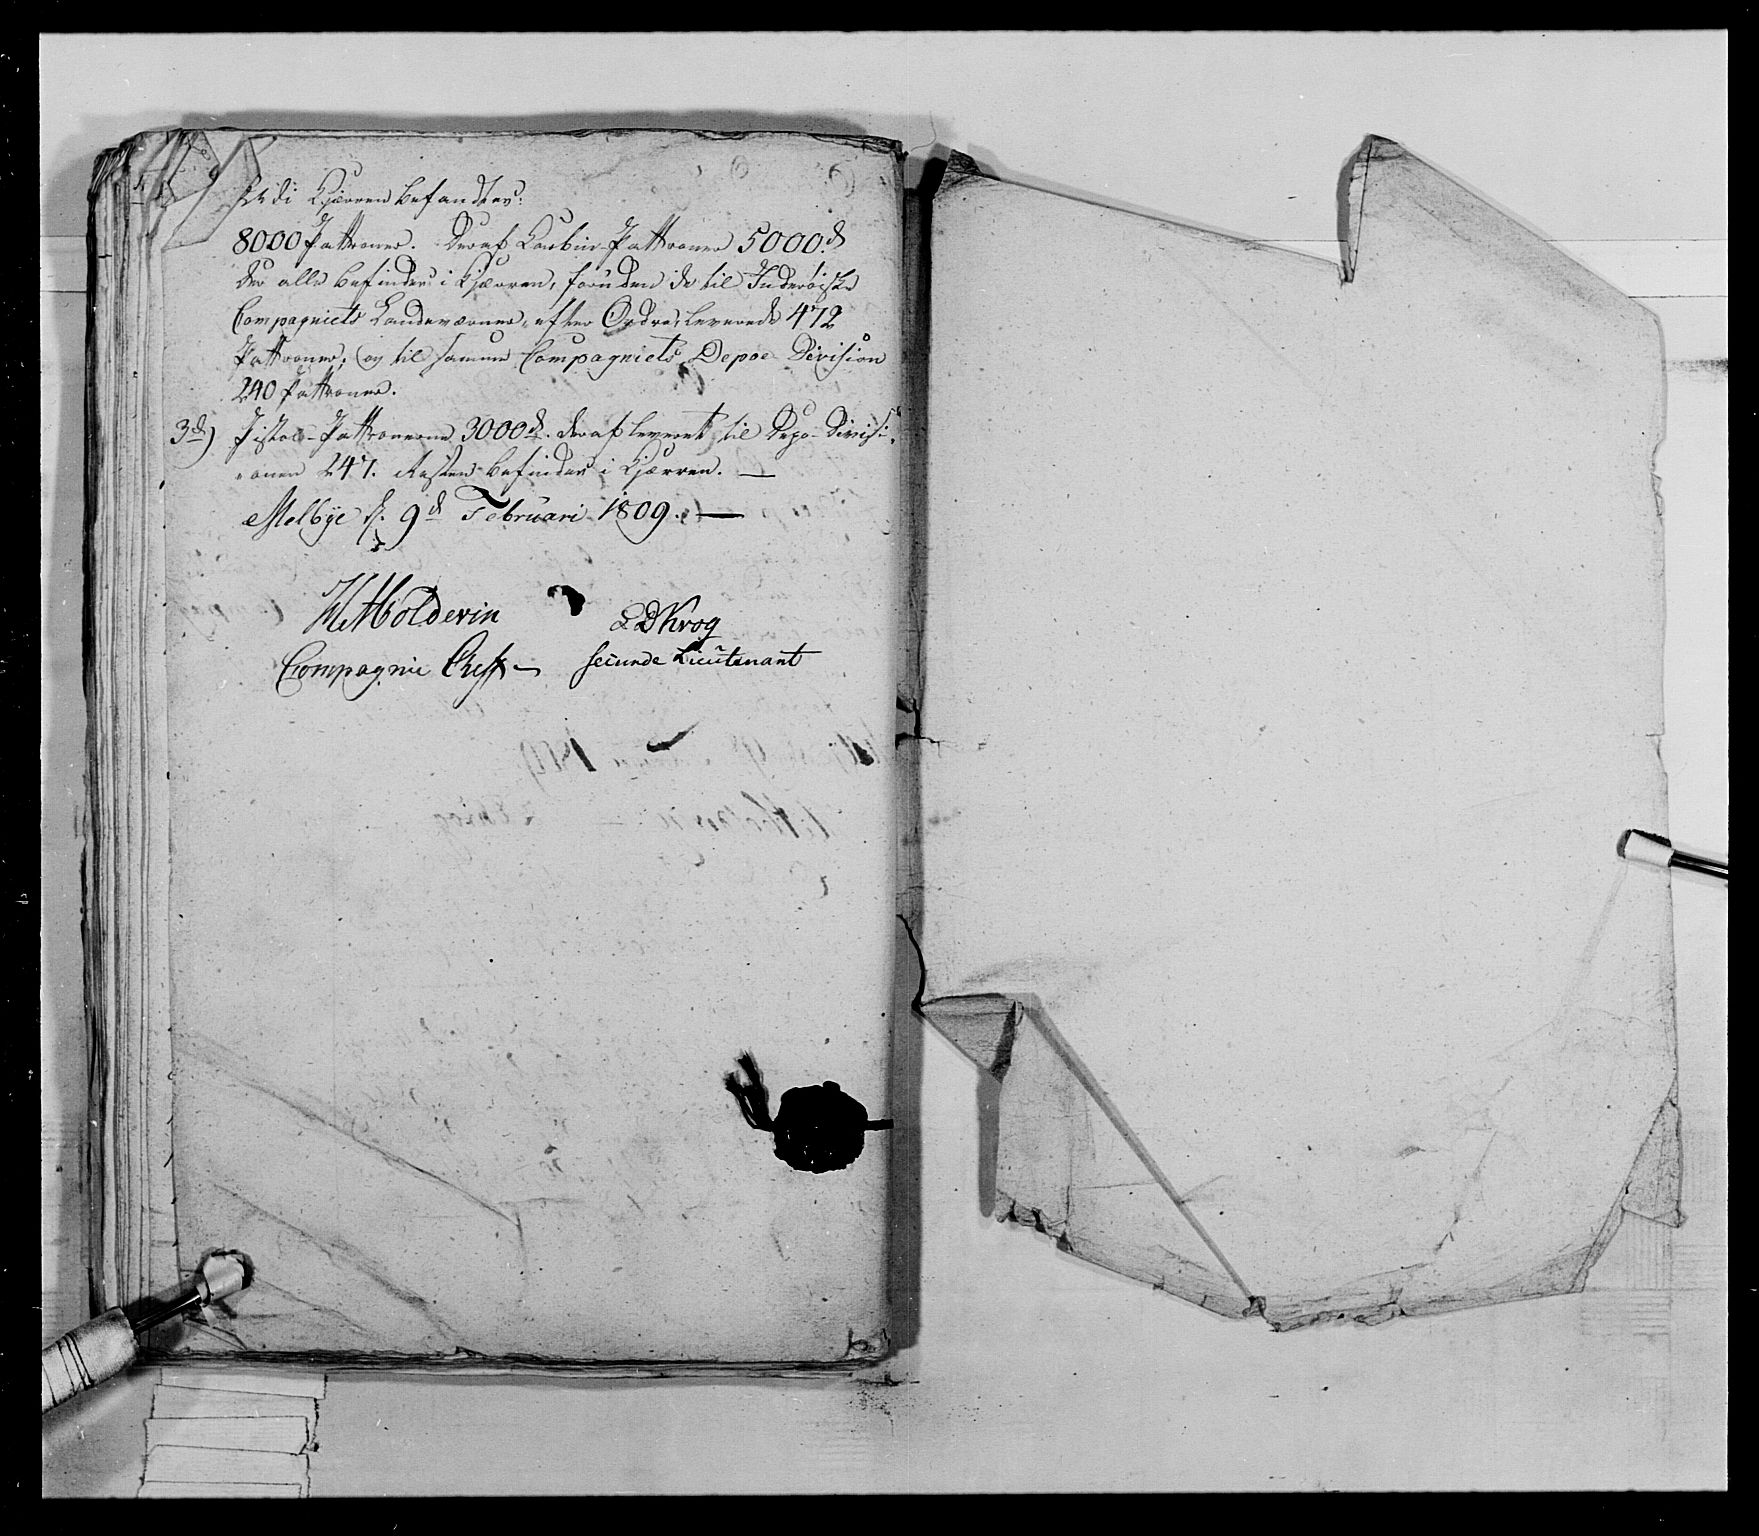 i Kjærren befandtes:
8000 Pattroner. Deraf Carbin-Pattroner 5000 d
der alle befindes i Kjærren, foruden de til Inderöiske
Compagniets Landeværner, efter Ordre, leverede 472
Pattroner, og til samme Compagniets Depoe Division
240 Pattroner.
3d) Pistol-Pattronerne 3000 d. deraf leveret til Depo-Divisi-
-onen 247. Resten befindes i Kjærren. —
Melbye d. 9d Februari 1809. —
Holdevin LDKrog
Compagnie Cheff — secunde Lieutenant